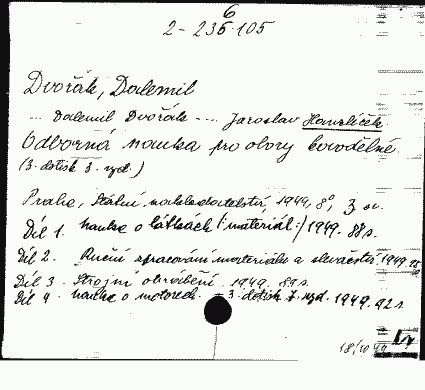 6
2-235-105
Dvořák, Dalemil
... Dalemil Dvořák -... Jaroslav Havelíček
Odborná nauka pro obory kovodělné
(3. dotisk 3. vyd.)
Praha, Státní nakladatelství, 1949, 8°, 3 sv.
Díl 1. nauka o látkách (:materiál:) 1949. 88 s.
Díl 2. Ruční zpracování materiálu a 1949
Díl 3. Strojní obrábění. 1949. 89 s.
Díl 4. nauka o motorech. - 3. dotisk 7. vyd. 1949. 92 s.